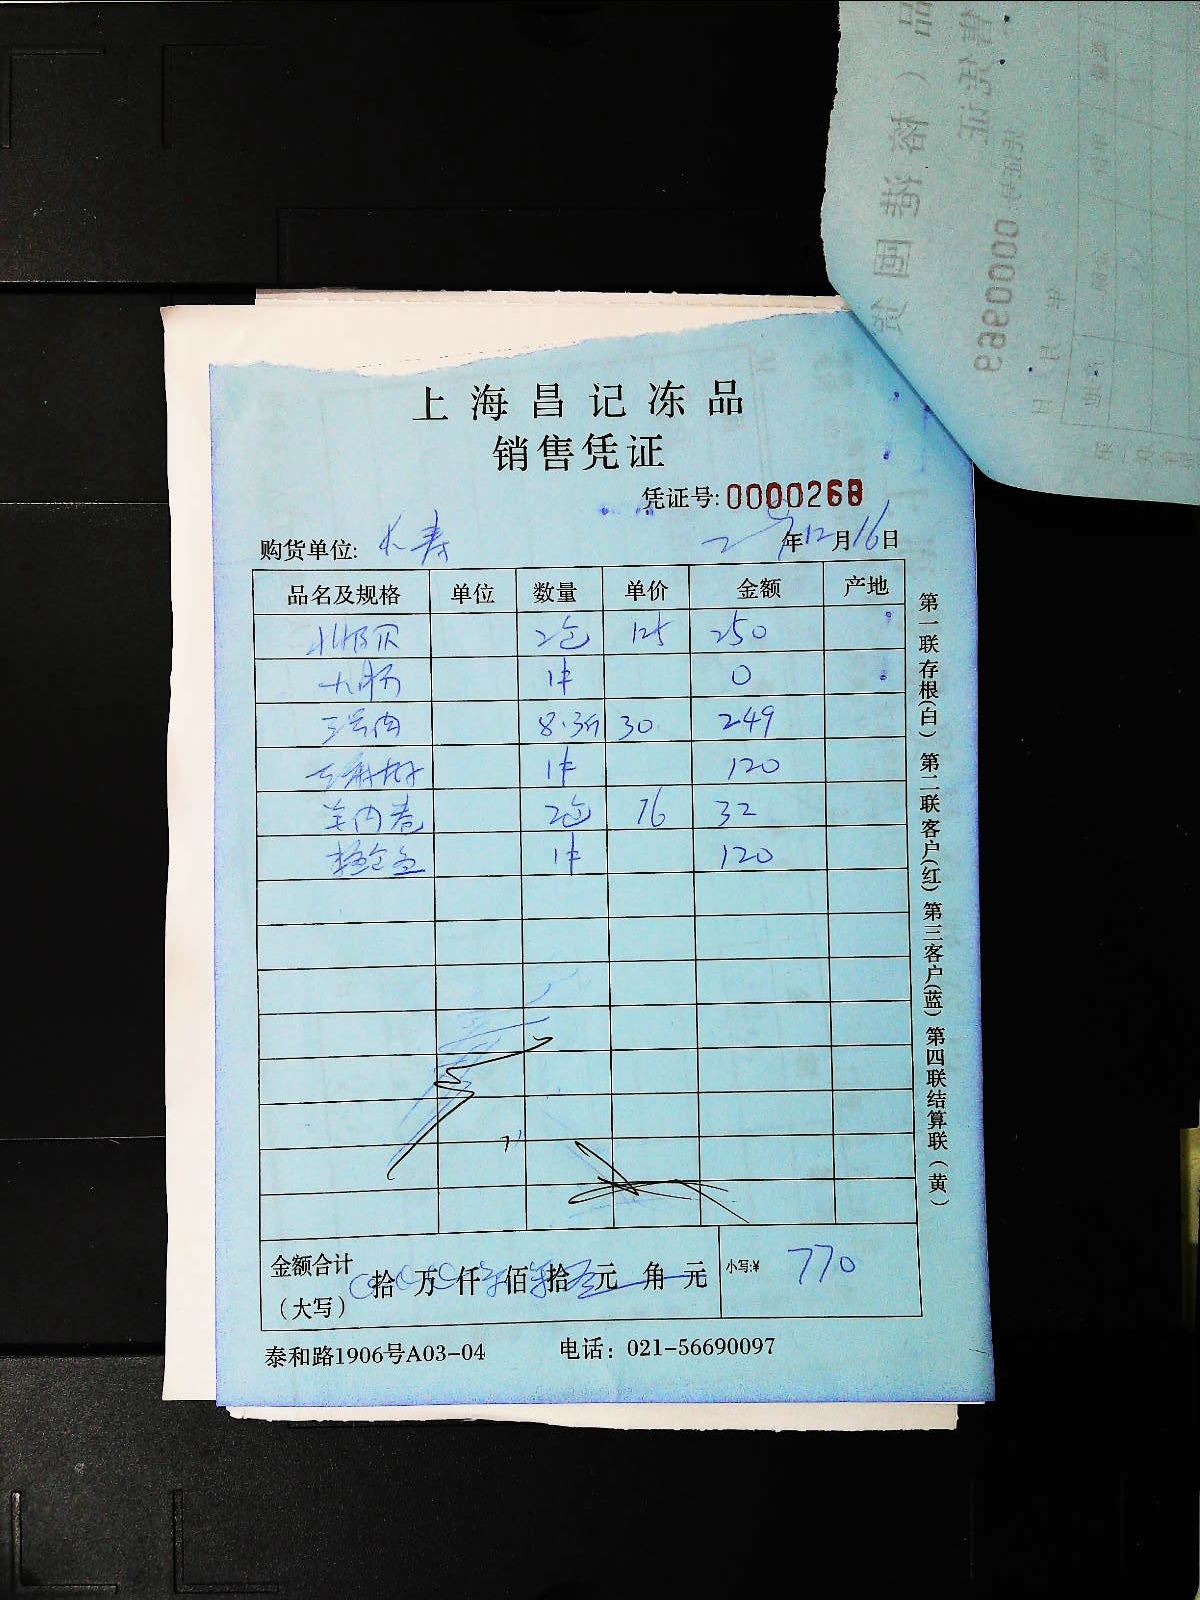 上海昌记冻品
销售凭证
凭证号:0000268
购货单位: 长寿 年12月16日
品名及规格 单位 数量 单价 金额 产地
北极贝 2包 125 250
大肠 1件 0
8.3斤 30 249
1件 120
羊肉卷 2包 16 32
1件 120
金额合计(大写) 拾 万 仟 佰 拾 元 角 元 小写:¥ 770
泰和路1906号A03-04 电话: 021-56690097
第一联存根(白) 第二联客户(红) 第三客户(蓝) 第四联结算联(黄)
0000969